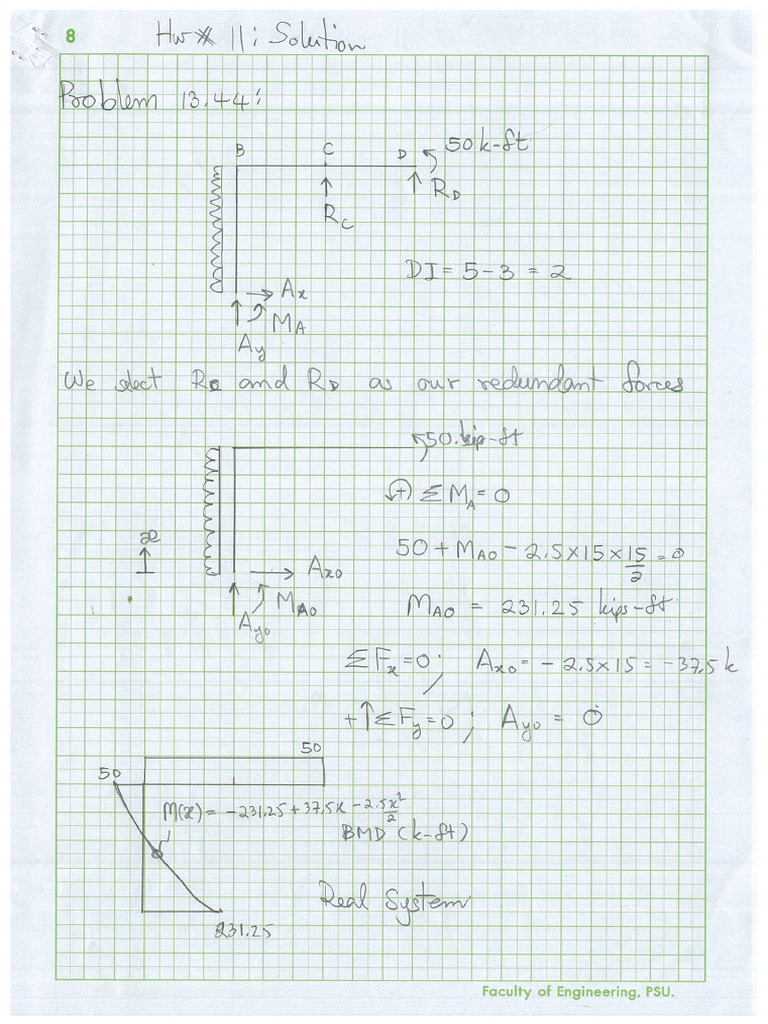 8
Hw# 11: Solution
Problem 13.44:
B C D 50 k-ft
R_D
R_C
DI = 5 - 3 = 2
A_x
M_A
A_y
We select R_C and R_D as our redundant forces
50.kip-ft
+ ΣM_A = 0
x
50 + M_AO - 2.5×15×15/2 = 0
A_xo
M_AO
M_AO = 231.25 kips-ft
A_yo
ΣF_x=0; A_xo = -2.5×15 = -37.5 k
+↑ΣF_y=0; A_yo = 0
50
50
M(x) = -231.25+37.5x-2.5x²/2
BMD (k-ft)
Real System
231.25
Faculty of Engineering, PSU.